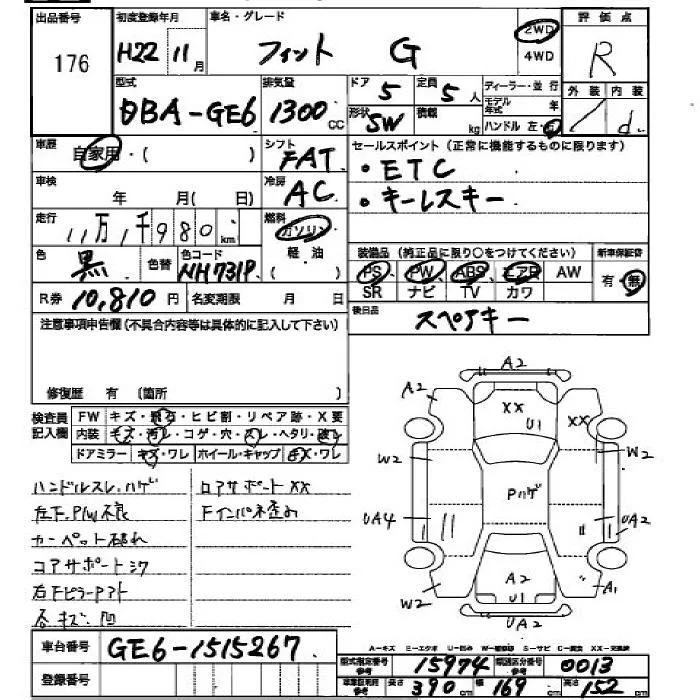 出品番号
176
初度登録年月
H22 11月
車名・グレード
フィット G
2WD
4WD
評価点
R
外装 内装
/ d
型式
DBA-GE6
排気量
1300 CC
ドア
5
定員
5人
形状
SW
積載
kg
ディーラー・並行
モデル年式 年
ハンドル 左・右
車歴
自家用・( )
シフト
FAT
セールスポイント (正常に機能するものに限ります)
・ETC
・キーレスキー
車検
年 月(日)
冷房
AC
走行
11万1千980km
燃料
ガソリン
軽・油
色
黒
色替
色コード
NH731P
装備品 (純正品に限り○をつけてください)
PS PW ABS エアB AW
SR ナビ TV カワ
新車保証書
有・無
R券 10,810円
名変期限 月 日
後日品
スペアキー
注意事項申告欄(不具合内容等は具体的に記入して下さい)
修復歴 有 (箇所 )
検査員記入欄
FW キズ・飛石・ヒビ割・リペア跡・X要
内装 キズ・汚レ・コゲ・穴・スレ・ヘタリ・破レ
ドアミラー キズ・ワレ ホイール・キャップ キズ・ワレ
ハンドルスレ、ハゲ
左F.P/W不良
カーペット破れ
コアサポートシワ
右Fピラーアト
各キズ凹
ロアサポートXX
Fインパネ歪み
A2
A2
XX
U1
XX
W2
W2
Pハゲ
UA4
UA2
A2
U1
W2
A1
UA2
車台番号
GE6-1515267
登録番号
A=キズ E=エクボ U=凹み W=補修跡 S=サビ C=腐食 XX=交換済
型式指定番号 参考
15974
類別区分番号 参考
0013
車庫証明用 参考
長さ 390cm
幅 169cm
高さ 152cm